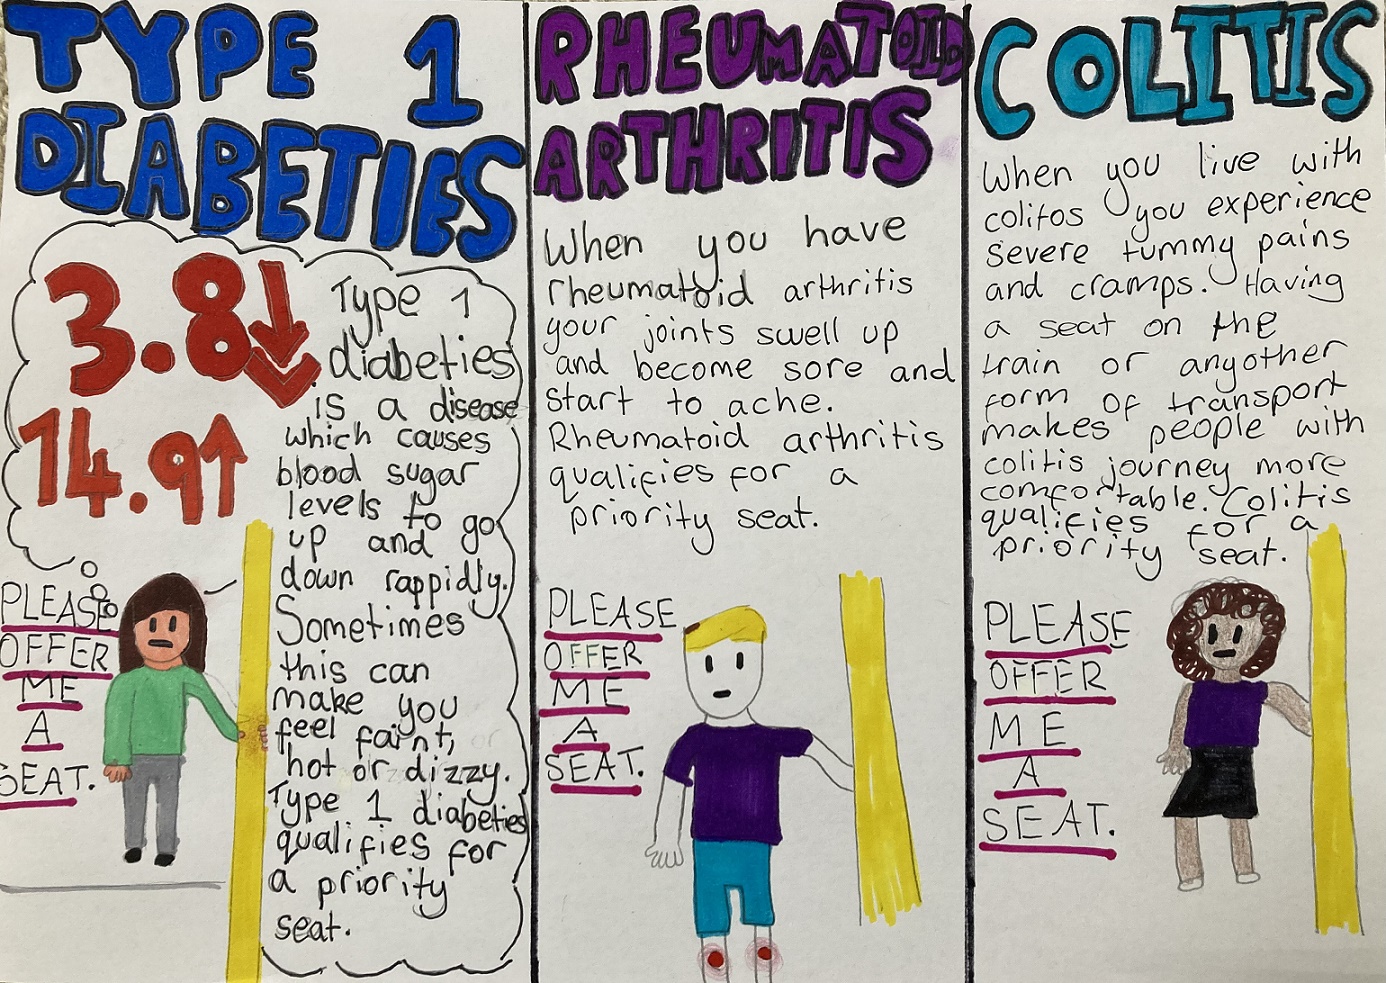 TYPE 1
DIABETIES
3.8
14.9
Type 1
diabeties
is a disease
which causes
blood sugar
levels to go
up and go
down rappidly.
Sometimes
this can
make you
feel faint,
hot or dizzy.
Type 1 diabeties
qualifies for
a priority
seat.
PLEASE
OFFER
ME
A
SEAT.
RHEUMATOID
ARTHRITIS
When you have
rheumatoid arthritis
your joints swell up
and become sore and
start to ache.
Rheumatoid arthritis
qualifies for a
priority seat.
PLEASE
OFFER
ME
A
SEAT.
COLITIS
When you live with
colitos you experience
severe tummy pains
and cramps. Having
a seat on the
train or anyother
form of transport
makes people with
colitis journey more
comfortable. Colitis
qualifies for a
priority seat.
PLEASE
OFFER
ME
A
SEAT.